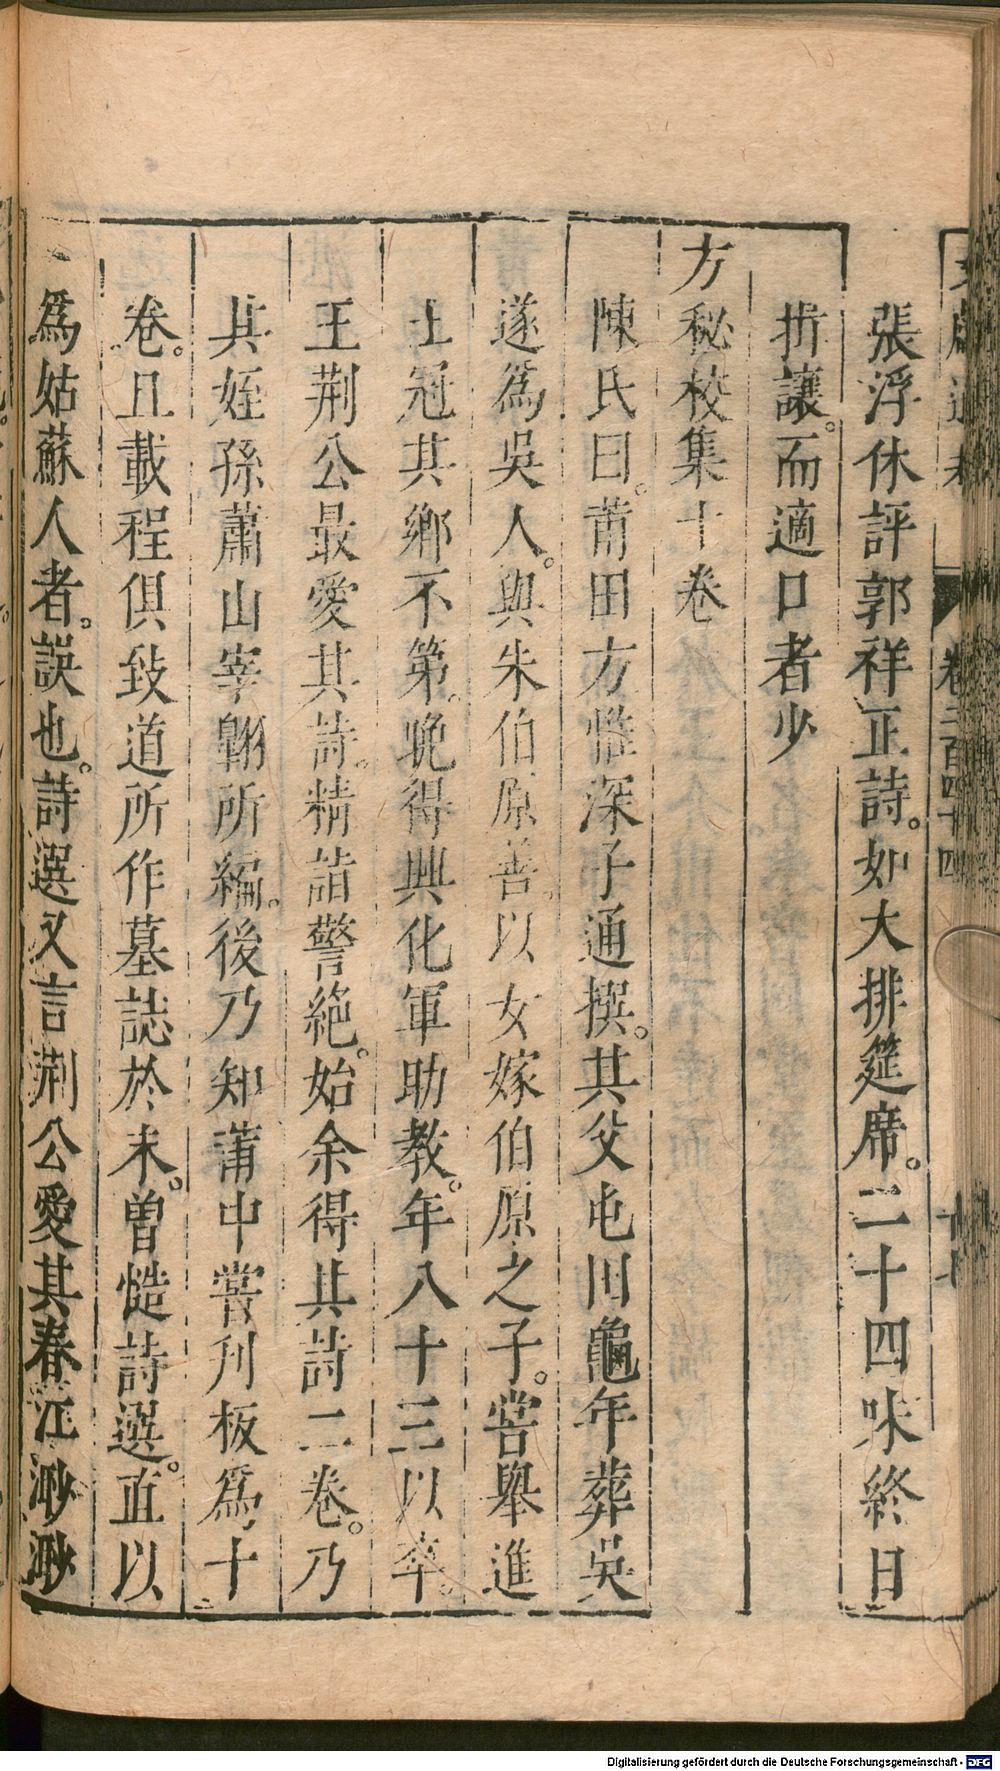 張浮休評郭祥正詩。如大排筵席。二十四味終日
揖讓。而適口者少
方秘校集十卷
陳氏曰。莆田方惟深子通撰。其父屯田龜年葬吳
遂爲吳人。與朱伯原善。以女嫁伯原之子。嘗舉進
士冠其鄉不第。晩得興化軍助教。年八十三以卒。
王荆公最愛其詩。精詣警絕。始余得其詩二卷。乃
其姪孫蕭山宰翺所編。後乃知莆中嘗刋板爲十
卷。且載程俱致道所作墓誌於末。曾慥詩選。直以
爲姑蘇人者。誤也。詩選又言荆公愛其春江渺渺
卷二百四十四
十七
Digitalisierung gefördert durch die Deutsche Forschungsgemeinschaft - DFG